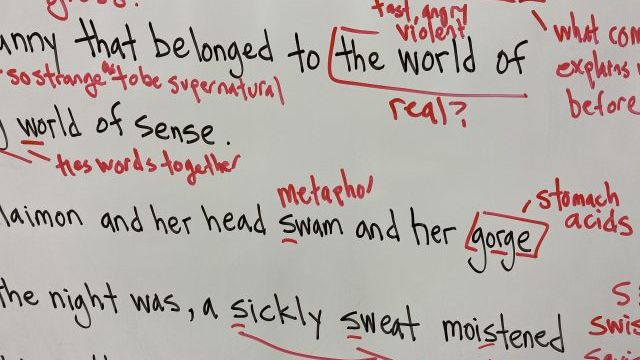 fast, angry
violent
what com
anny that belonged to the world of
explains
so strange as to be supernatural
real?
before
world of sense.
ties words together
metaphor
stomach
acids
laimon and her head swam and her gorge
the night was, a sickly sweat moistened
swis